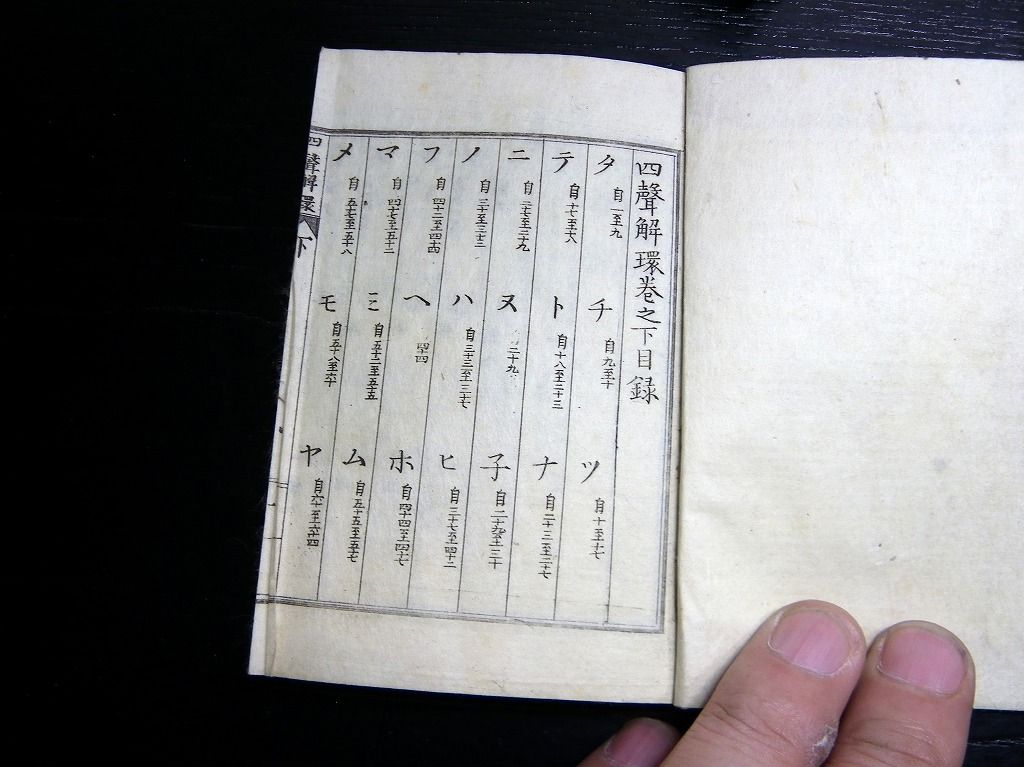 四聲解環卷之下目録
タ 自一至九
チ 自九至十
ツ 自十至十七
テ 自十七至十八
ト 自十八至二十三
ナ 自二十三至二十七
ニ 自二十七至二十九
ヌ 二十九
子 自二十九至三十
ノ 自三十至三十三
ハ 自三十三至三十七
ヒ 自三十七至四十二
フ 自四十二至四十四
ヘ 四十四
ホ 自四十四至四十七
マ 自四十七至五十二
ミ 自五十二至五十五
ム 自五十五至五十七
メ 自五十七至五十八
モ 自五十八至六十
ヤ 自六十至六十四
四聲解環 下